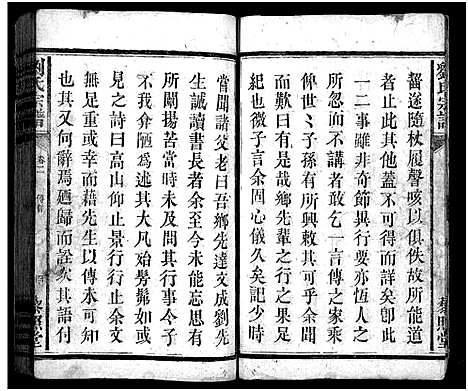 劉氏宗譜
嵆遂隨杖履謦咳以俱佚故所能道
者止此其他蓋不可得而詳矣卽此
一二事雖非奇節異行要亦恆人之
所忽而不講者是故一言傳之家乘
俾世丶子孫有所興敕焉何其幸也
吾因之有感矣鄉先輩之行之果足
紀也微子言余固心儀久矣記少時
嘗聞諸父老曰吾鄉先達文成劉先
生誠讀書長者余至今未能忘思有
所闡揚苦當時未及問其行事令子
不以余爲陋爲述其大凡始髣髴如或
見之詩曰高山仰止景行行止余文
無足重或幸藉先生以傳未可知
也其又何辭焉廼歸而次其語付
劉氏宗譜
卷二
藜照堂